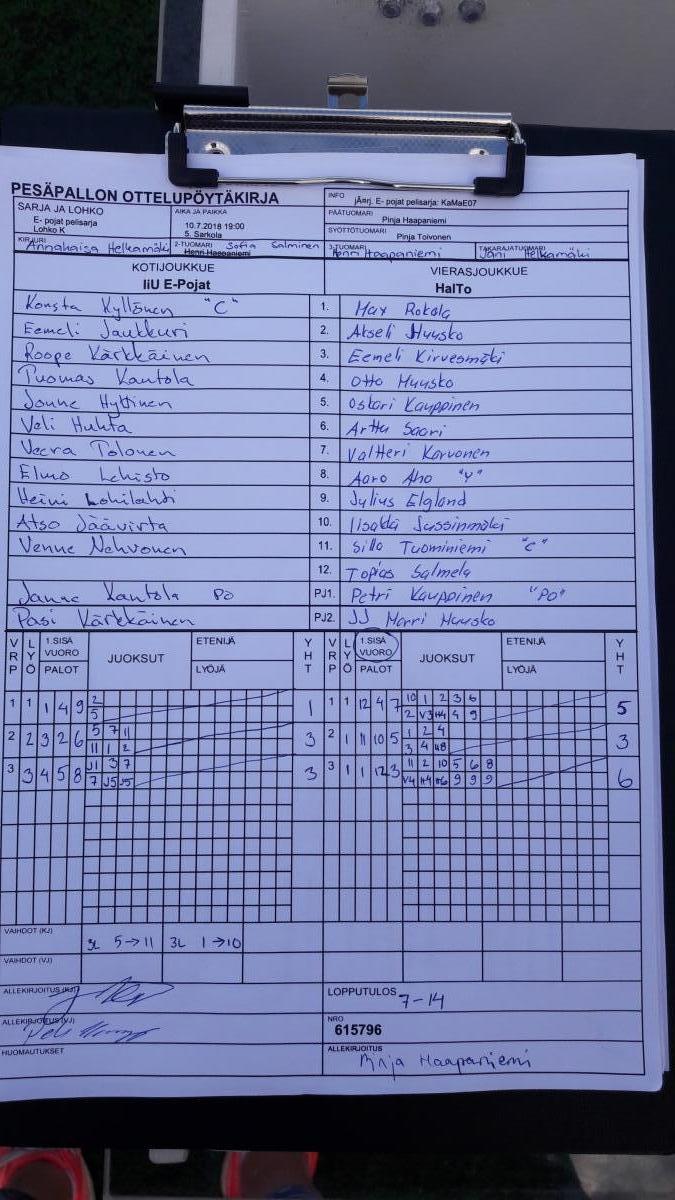 PESÄPALLON OTTELUPÖYTÄKIRJA
INFO jÄ¤rj. E- pojat pelisarja: KaMaE07
SARJA JA LOHKO
E- pojat pelisarja
Lohko K
AIKA JA PAIKKA
10.7.2018 19:00
5. Sarkola
PÄÄTUOMARI
Pinja Haapaniemi
SYÖTTÖTUOMARI
Pinja Toivonen
KIRJURI Annakaisa Helkamäki
2-TUOMARI Sofia Salminen
Henri Haapaniemi
3-TUOMARI Henri Haapaniemi
TAKARAJATUOMARI Jani Helkamäki
KOTIJOUKKUE VIERASJOUKKUE
IiU E-Pojat HalTo
Konsta Kyllönen "C" 1. Max Rokola
Eemeli Jaukkuri 2. Akseli Huusko
Roope Kärkkäinen 3. Eemeli Kirvesmäki
Tuomas Kantola 4. Otto Huusko
Jonne Hyttinen 5. Oskari Kauppinen
Veli Huhta 6. Arttu Saari
Veera Tolonen 7. Valtteri Karvonen
Elmo Lehisto 8. Aaro Aho "Y"
Heini Lohilahti 9. Julius Elgland
Atso Jäävirta 10. Iisakki Sassinmäki
Venne Nehvonen 11. Sillo Tuominiemi "C"
12. Topias Salmela
Janne Kantola PO PJ1. Petri Kauppinen "PO"
Pasi Kärkkäinen PJ2. JJ Harri Huusko
VRP LYÖ 1.SISÄ VUORO PALOT JUOKSUT ETENIJÄ LYÖJÄ YHT VRP LYÖ 1.SISÄ VUORO PALOT JUOKSUT ETENIJÄ LYÖJÄ YHT
1 1 1 4 9 2 1 1 1 12 4 7 10 1 2 3 6 5
5 2 V3 H4 4 9
2 2 3 2 6 5 7 11 3 2 1 11 10 5 1 2 4 3
11 1 2 3 4 H8
3 3 4 5 8 J1 3 7 3 3 1 1 12 3 11 2 10 5 6 8 6
7 J5 J5 V4 H4 H6 9 9 9
VAIHDOT (KJ) 3L 5→11 3L 1→10
VAIHDOT (VJ)
ALLEKIRJOITUS (KJ)
LOPPUTULOS 7-14
ALLEKIRJOITUS (VJ)
NRO
615796
HUOMAUTUKSET
ALLEKIRJOITUS
Pinja Haapaniemi